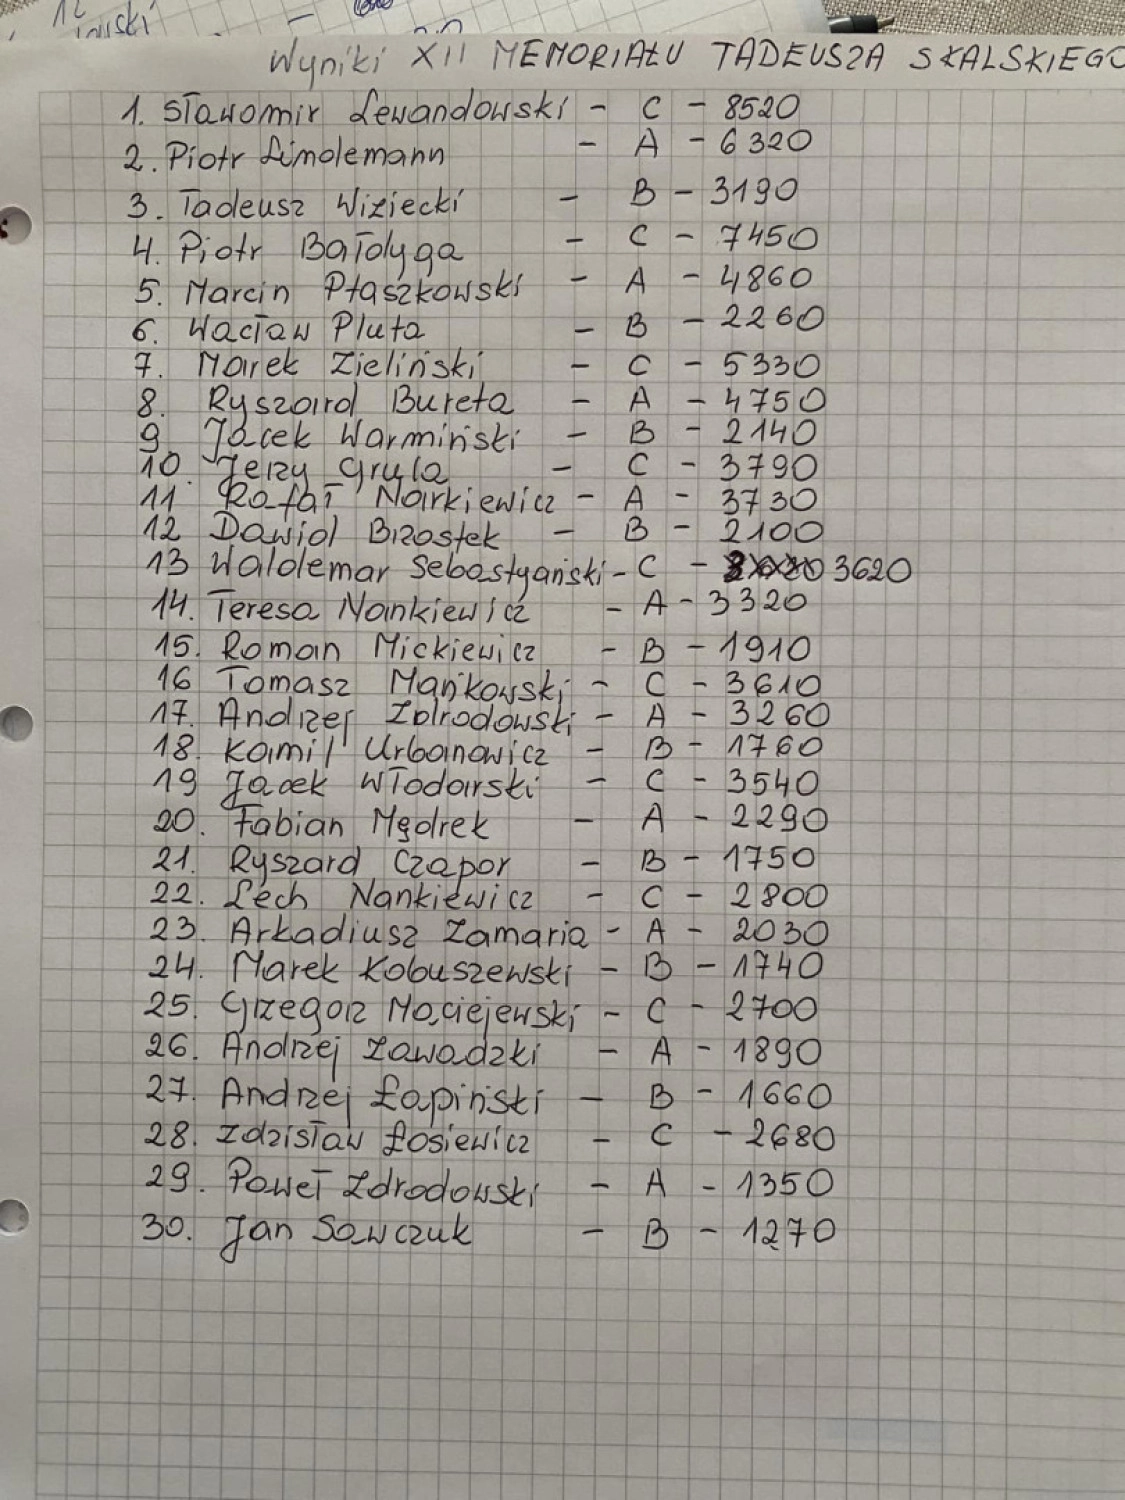 Wyniki XII MEMORIAŁU TADEUSZA SKALSKIEGO
1. Sławomir Lewandowski - C - 8520
2. Piotr Lindemann - A - 6320
3. Tadeusz Wiziecki - B - 3190
4. Piotr Bałdyga - C - 7450
5. Marcin Ptaszkowski - A - 4860
6. Wacław Pluta - B - 2260
7. Marek Zieliński - C - 5330
8. Ryszard Bureta - A - 4750
9 Jacek Warmiński - B - 2140
10. Jerzy Gryla - C - 3790
11 Rafał Narkiewicz - A - 3730
12 Dawid Brzostek - B - 2100
13 Waldemar Sebastyański - C - 3620
14. Teresa Nankiewicz - A - 3320
15. Roman Mickiewicz - B - 1910
16 Tomasz Mańkowski - C - 3610
17. Andrzej Zdrodowski - A - 3260
18. Kamil Urbanowicz - B - 1760
19 Jacek Włodarski - C - 3540
20. Fabian Mędrek - A - 2290
21. Ryszard Czapor - B - 1750
22. Lech Nankiewicz - C - 2800
23. Arkadiusz Zamaria - A - 2030
24. Marek Kobuszewski - B - 1740
25. Grzegorz Maciejewski - C - 2700
26. Andrzej Zawadzki - A - 1890
27. Andrzej Łapiński - B - 1660
28. Zdzisław Łosiewicz - C - 2680
29. Paweł Zdrodowski - A - 1350
30. Jan Sawczuk - B - 1270